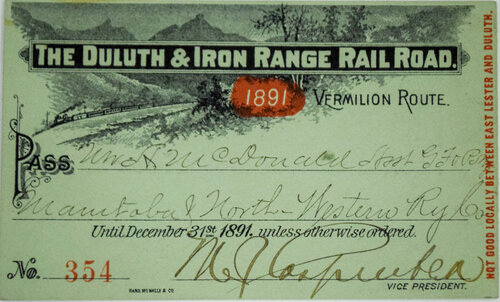 THE DULUTH & IRON RANGE RAIL ROAD.
1891 VERMILION ROUTE.
PASS Mr. A McDonald Asst
Manitoba & North-Western Ry. Co
Until December 31st 1891, unless otherwise ordered.
No. 354
VICE PRESIDENT.
RAND, MCNALLY & CO.
NOT GOOD LOCALLY BETWEEN EAST LESTER AND DULUTH.